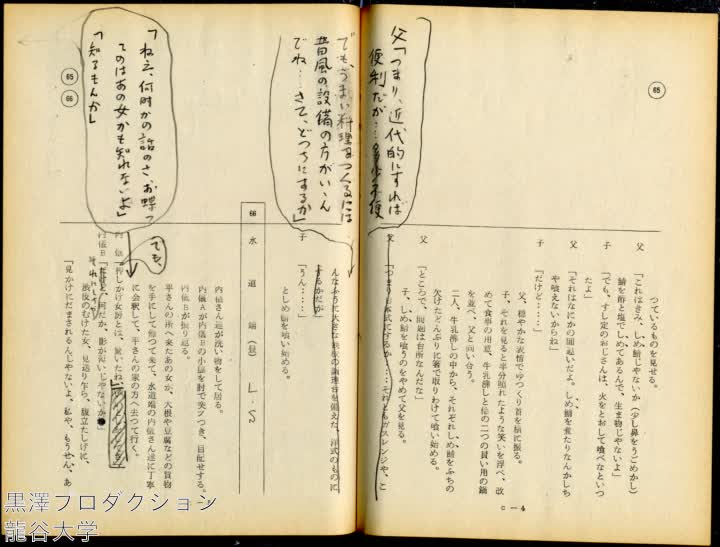 65
つているものを見せる。
父「これはきみ、しめ鯖じやないか(少し鼻をうごめかし)
鯖を酢と塩でしめてあるんで、生ま物じやないよ」
子「でも、すし定のおじさんは、火をとおして喰べなといつ
たよ」
父「それはなにかの間違いだよ。しめ鯖を煮たりなんかしち
や喰えないからね」
子「だけど……」
父、穏やかな表情でゆつくり首を横に振る。
子、それを見ると半分照れたような笑いを浮べ、改
めて食事の用意、牛乳沸しと柄の二つの買い用の鍋
を並べ、父と向い合う。
二人、牛乳沸しの中から、それぞれしめ鯖をふちの
欠けたどんぶりに箸で取りわけて喰い始める。
父「ところで、問題は台所なんだな」
子、しめ鯖を喰うのをやめて父を見る。
父「つまり日本式にするか……それともガスレンジや、こ
c—4
父「つまり、近代的にすれば
便利だが…
でも、うまい料理をつくるには
昔風の設備の方がいゝん
でね……さて、どつちにするか」
んなふうに大きな
を備えた、洋式のものに
するかだが
子「うん……」
としめ鯖を喰い始める。
66 水道端(昼) L・S
内儀さん達が洗い物をして居る。
内儀Aが内儀Bの小脇を肘で突ツつき、目配せする。
内儀Bが振り返る。
平さんの所へ来たあの女が、大根や豆腐などの買物
を手にして帰つて来て、水道端の内儀さん達に丁寧
に会釈して、平さんの家の方へ去つて行く。
でも、
内儀A「押しかけ女房とは、驚いたね
それにしても
内儀B「だけど、何だか、影が薄いじやないか
渋皮のむけた女、見送り乍ら、腹立たしげに、
「見かけにだまされるんじやないよ、私や、もうせん、あ
65
66
「ねえ、何時かの話のさ、お蝶つ
てのはあの女かも知れないよ」
「知るもんか」
黒澤プロダクション
龍谷大学